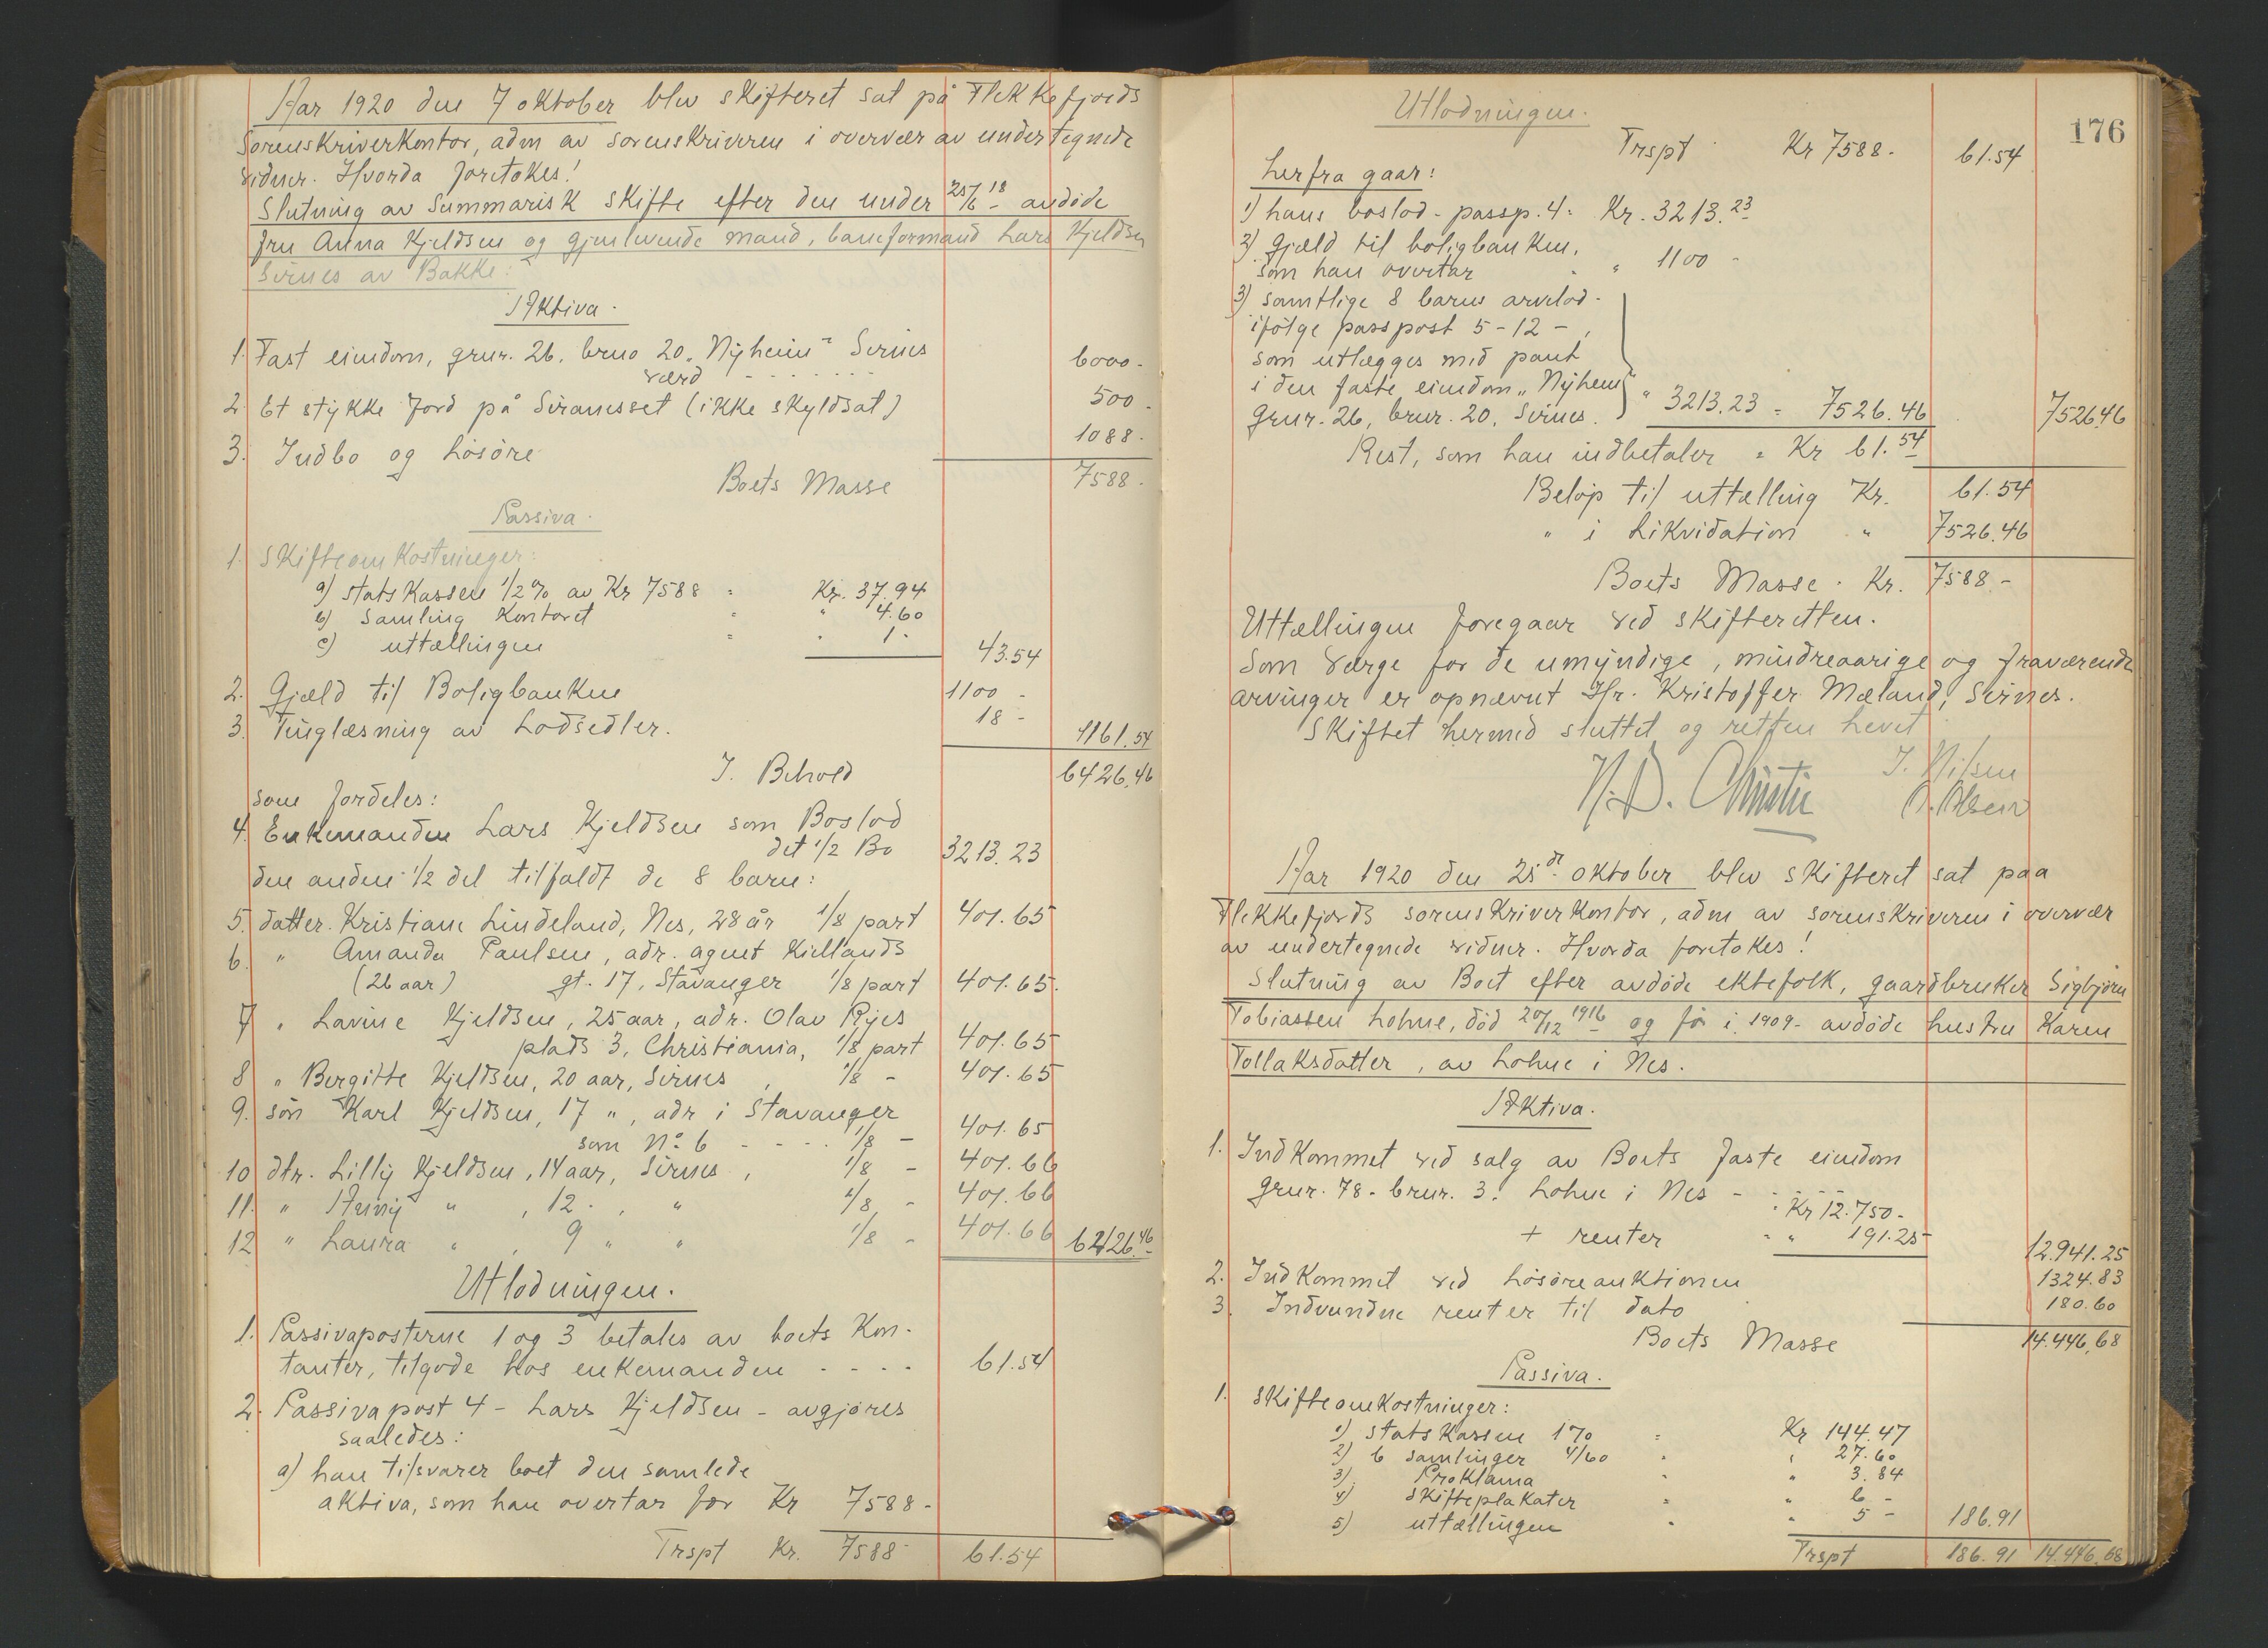 Aar 1920 den 7 oktober blev skifteret sat på Flekkefjords
Sorenskriverkontor, adm av sorenskriveren i overvær av undertegnede
vidner. Hvorda foretokes!
Slutning av Summarisk skifte efter den under 25/6 18 avdöde
fru Anna Kjeldsen og gjenlevende mand, baneformand Lars Kjeldsen
Sirnes av Bakke:
Aktiva.
1. Fast eiendom, grnr. 26, brno 20 „Nyheim" Sirnes
værd - - - - - - - 6000.-
2. Et stykke Jord på Siranesset (ikke skyldsat) 500.-
3. Indbo og Lösöre 1088.-
Boets Masse 7588.-
Passiva.
1. Skifteomkostninger:
a) statskassen 1/2 % av Kr 7588 = Kr. 37.94
b) Samling Kontoret = " 4.60
c) uttællingen = " 1.- 43.54
2. Gjæld til Boligbanken 1100 -
3. Tinglæsning av Lodsedler. 18 - 1161.54
I. Behold 6426.46
som fordeles:
4. Enkemanden Lars Kjeldsen som Boslod
det 1/2 Bo 3213.23
den anden 1/2 del tilfaldt de 8 barn:
5. datter. Kristiane Lindeland, Nes, 28 år 1/8 part 401.65
6. " Amanda Paulsen, adr. agent Kiellands
(26 aar) gt. 17, Stavanger 1/8 part 401.65.
7 " Lavine Kjeldsen, 25 aar, adr. Olav Ryes
plads 3, Christiania, 1/8 part 401.65
8 " Bergitte Kjeldsen, 20 aar, Sirnes, 1/8 - 401.65
9. sön Karl Kjeldsen, 17 ", adr i Stavanger
som No. 6 - - - - 1/8 - 401.65
10 dtr. Lilly Kjeldsen, 14 aar, Sirnes, 1/8 - 401.66
11. " " , 12 . , " 1/8 - 401.66
12 " Laura " , 9 " " 1/8 - 401.66 6426.46
Utlodningen.
1. Passivaposterne 1 og 3 betales av boets Kon-
tanter, tilgode hos enkemanden - - - - 61.54
2. Passivapost 4 - Lars Kjeldsen - avgjöres
saaledes:
a) han tilsvarer boet den samlede
aktiva, som han overtar for Kr 7588 -
Trspt Kr. 7588 - 61.54
176
Utlodningen.
Trspt Kr 7588 - 61.54
herfra gaar:
1) hans boslod - passp. 4 = Kr. 3213.23
2) Gjæld til boligbanken,
som han overtar - " 1100 -
3) samtlige 8 barns arvelod -
ifölge passpost 5 - 12 - ,
som utlægges med pant
i den faste eiendom „Nyheim"
grnr. 26, brnr. 20, Sirnes. " 3213.23 = 7526.46 7526.46
Rest, som han indbetaler = Kr 61.54
Belöp til uttælling Kr. 61.54
" i Likvidation " 7526.46
Boets Masse . Kr. 7588 -
Uttællingen foregaar ved skifteretten.
Som værge for de umyndige, mindreaarige og fraværende
arvinger er opnævnt Hr. Kristoffer Mæland, Sirnes.
Skiftet hermed sluttet og retten hevet
N.D. Christie J. Nilsen
O. Olsen
Aar 1920 den 25de oktober blev skifteret sat paa
Flekkefjords sorenskriverkontor, adm av sorenskriveren i overvær
av undertegnede vidner. Hvorda foretokes!
Slutning av Boet efter avdöde ektefolk, gaardbruker Sigbjörn
Tobiassen Lohne, död 20/12 1916 og för i 1909 - avdöde hustru Karen
Tollaksdatter, av Lohne i Nes.
Aktiva.
1. Indkommet ved salg av Boets faste eiendom
grnr. 78 - brnr. 3. Lohne i Nes - - - - : Kr 12.750 -
+ renter - " 191.25 - 12.941.25
2. Indkommet ved lösöreauktionen 1324.83
3. Indvundne renter til dato 180.60
Boets Masse 14.446.68
Passiva.
1. Skifteomkostninger:
1) statskassen 1 % = Kr 144.47
2) 6 samlinger 4/60 " 27.60
3) Proklama " 3.84
4) Skifteplakater = " 6 -
5) uttællingen " 5 - 186.91
Trspt 186.91 14.446.68